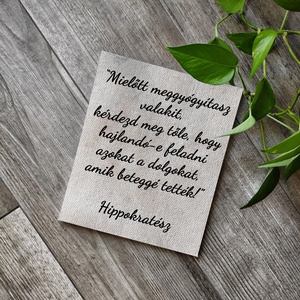 "Mielőtt meggyógyítasz
valakit,
kérdezd meg tőle, hogy
hajlandó-e feladni
azokat a dolgokat,
amik beteggé tették!"
Hippokratész